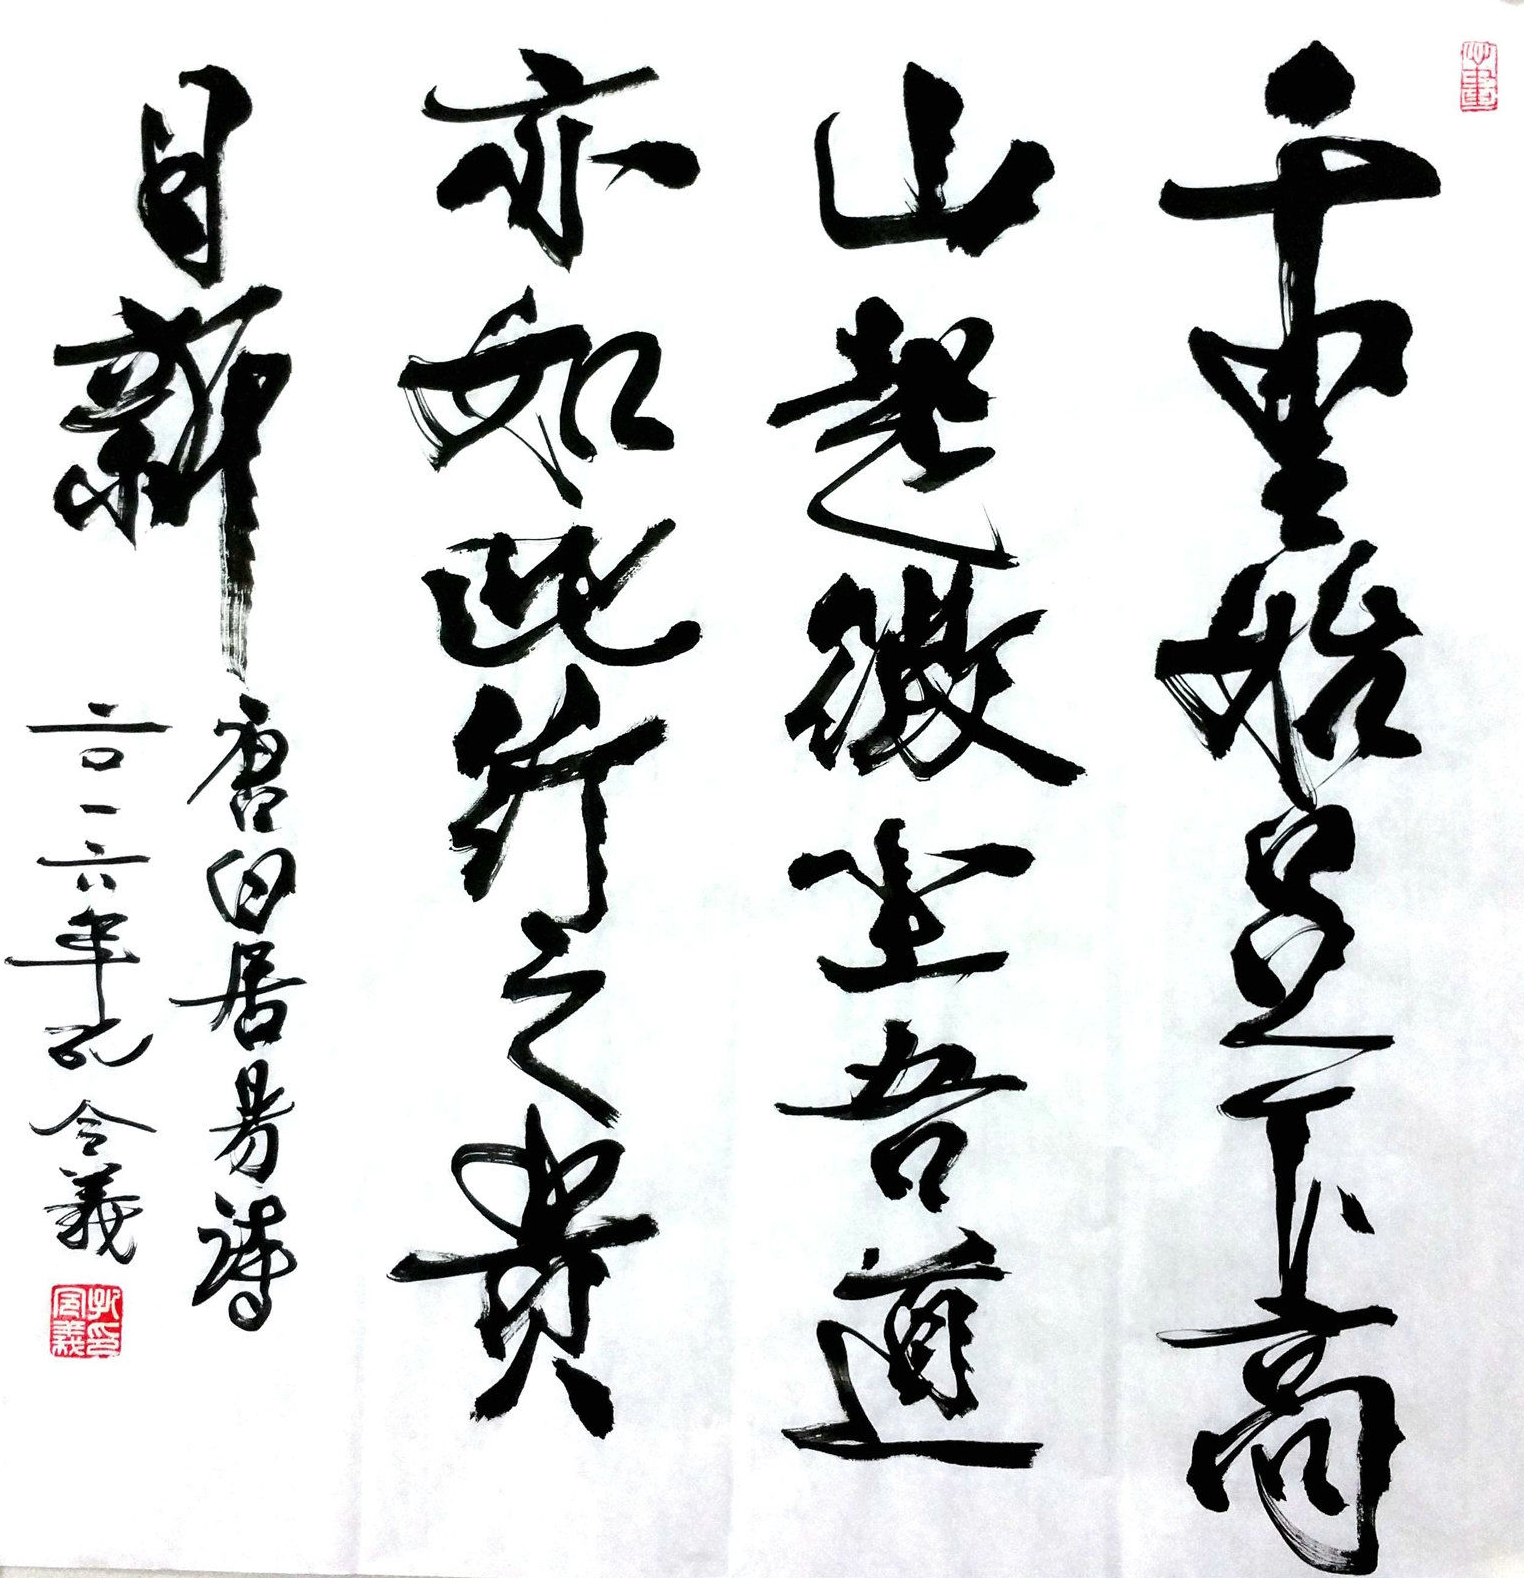 千里始足下高
山起微尘吾道
亦如此行之贵
日新
唐白居易詩
二〇一六年孔令義
孔令義印